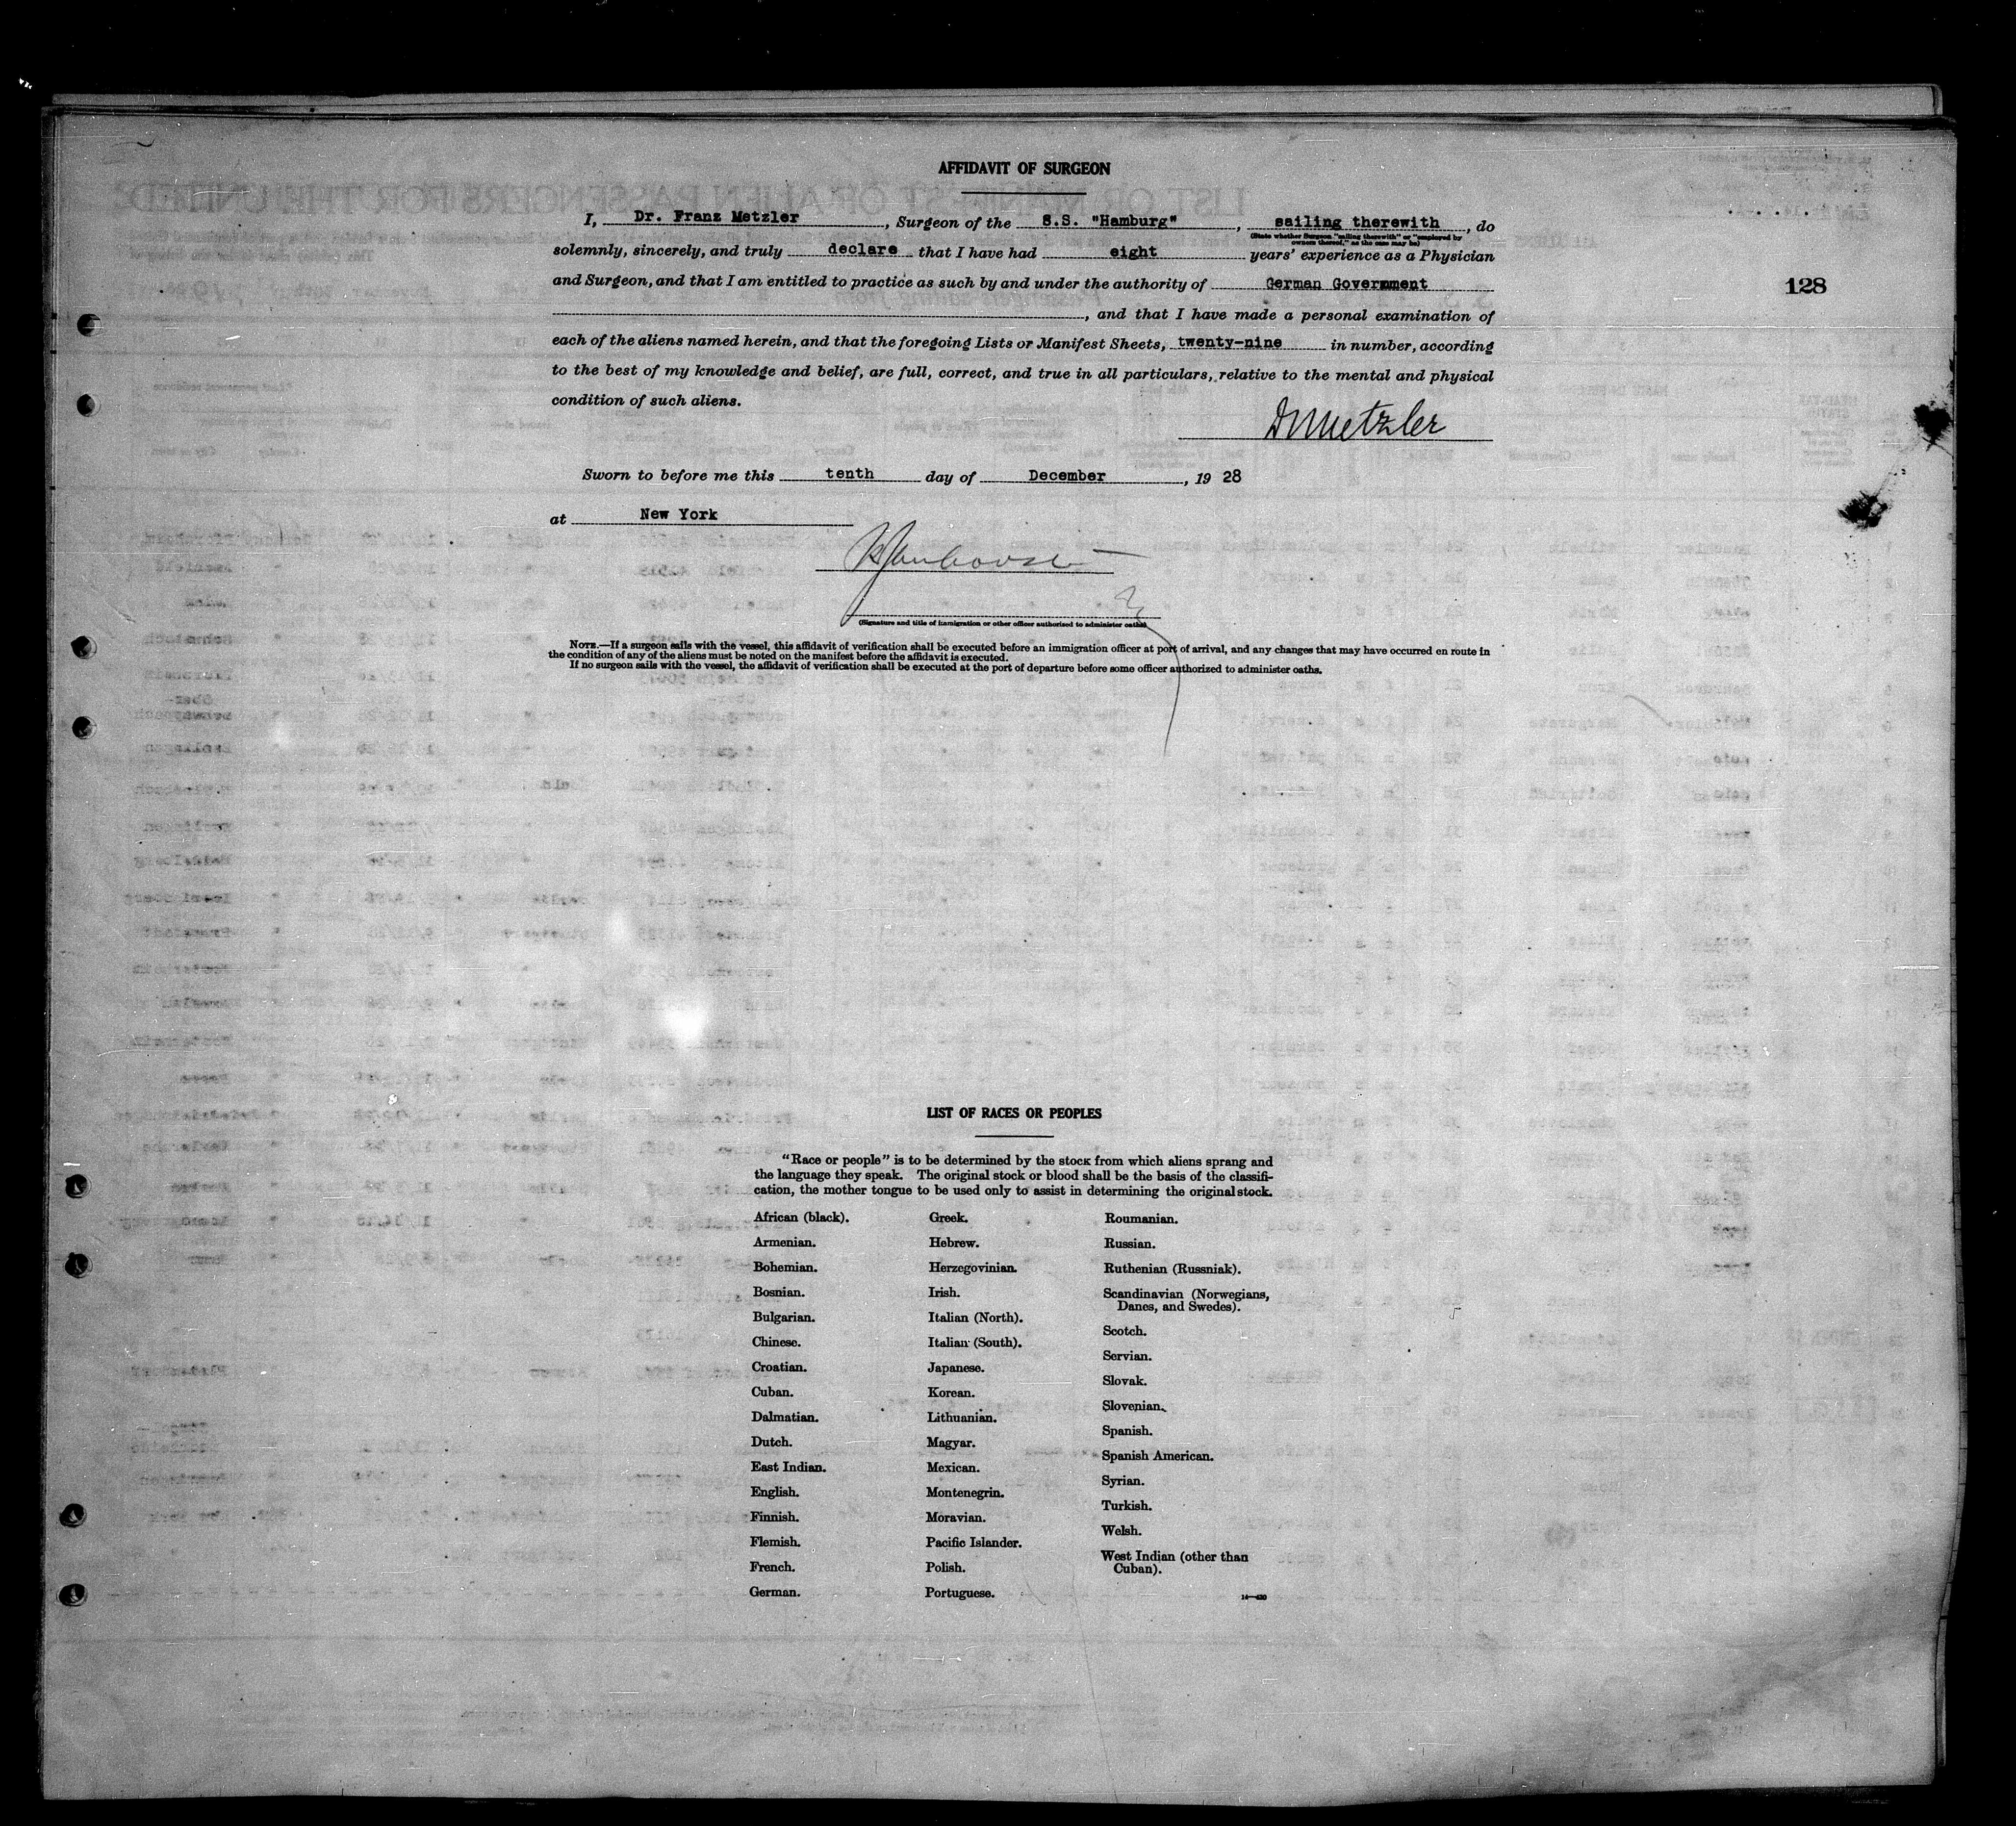 AFFIDAVIT OF SURGEON
I, Dr. Franz Metzler, Surgeon of the S.S. "Hamburg", sailing therewith, do
(State whether Surgeon "sailing therewith" or "employed by
owners thereof," as the case may be)
solemnly, sincerely, and truly declare that I have had eight years' experience as a Physician
and Surgeon, and that I am entitled to practice as such by and under the authority of German Government
128
, and that I have made a personal examination of
each of the aliens named herein, and that the foregoing Lists or Manifest Sheets, twenty-nine in number, according
to the best of my knowledge and belief, are full, correct, and true in all particulars, relative to the mental and physical
condition of such aliens.
Dr Metzler
Sworn to before me this tenth day of December, 19 28
at New York
(Signature and title of immigration or other officer authorized to administer oaths)
NOTE.—If a surgeon sails with the vessel, this affidavit of verification shall be executed before an immigration officer at port of arrival, and any changes that may have occurred en route in
the condition of any of the aliens must be noted on the manifest before the affidavit is executed.
If no surgeon sails with the vessel, the affidavit of verification shall be executed at the port of departure before some officer authorized to administer oaths.
LIST OF RACES OR PEOPLES
"Race or people" is to be determined by the stock from which aliens sprang and
the language they speak. The original stock or blood shall be the basis of the classifi-
cation, the mother tongue to be used only to assist in determining the original stock.
African (black).
Armenian.
Bohemian.
Bosnian.
Bulgarian.
Chinese.
Croatian.
Cuban.
Dalmatian.
Dutch.
East Indian.
English.
Finnish.
Flemish.
French.
German.
Greek.
Hebrew.
Herzegovinian.
Irish.
Italian (North).
Italian (South).
Japanese.
Korean.
Lithuanian.
Magyar.
Mexican.
Montenegrin.
Moravian.
Pacific Islander.
Polish.
Portuguese.
Roumanian.
Russian.
Ruthenian (Russniak).
Scandinavian (Norwegians,
Danes, and Swedes).
Scotch.
Servian.
Slovak.
Slovenian.
Spanish.
Spanish American.
Syrian.
Turkish.
Welsh.
West Indian (other than
Cuban).
14—430